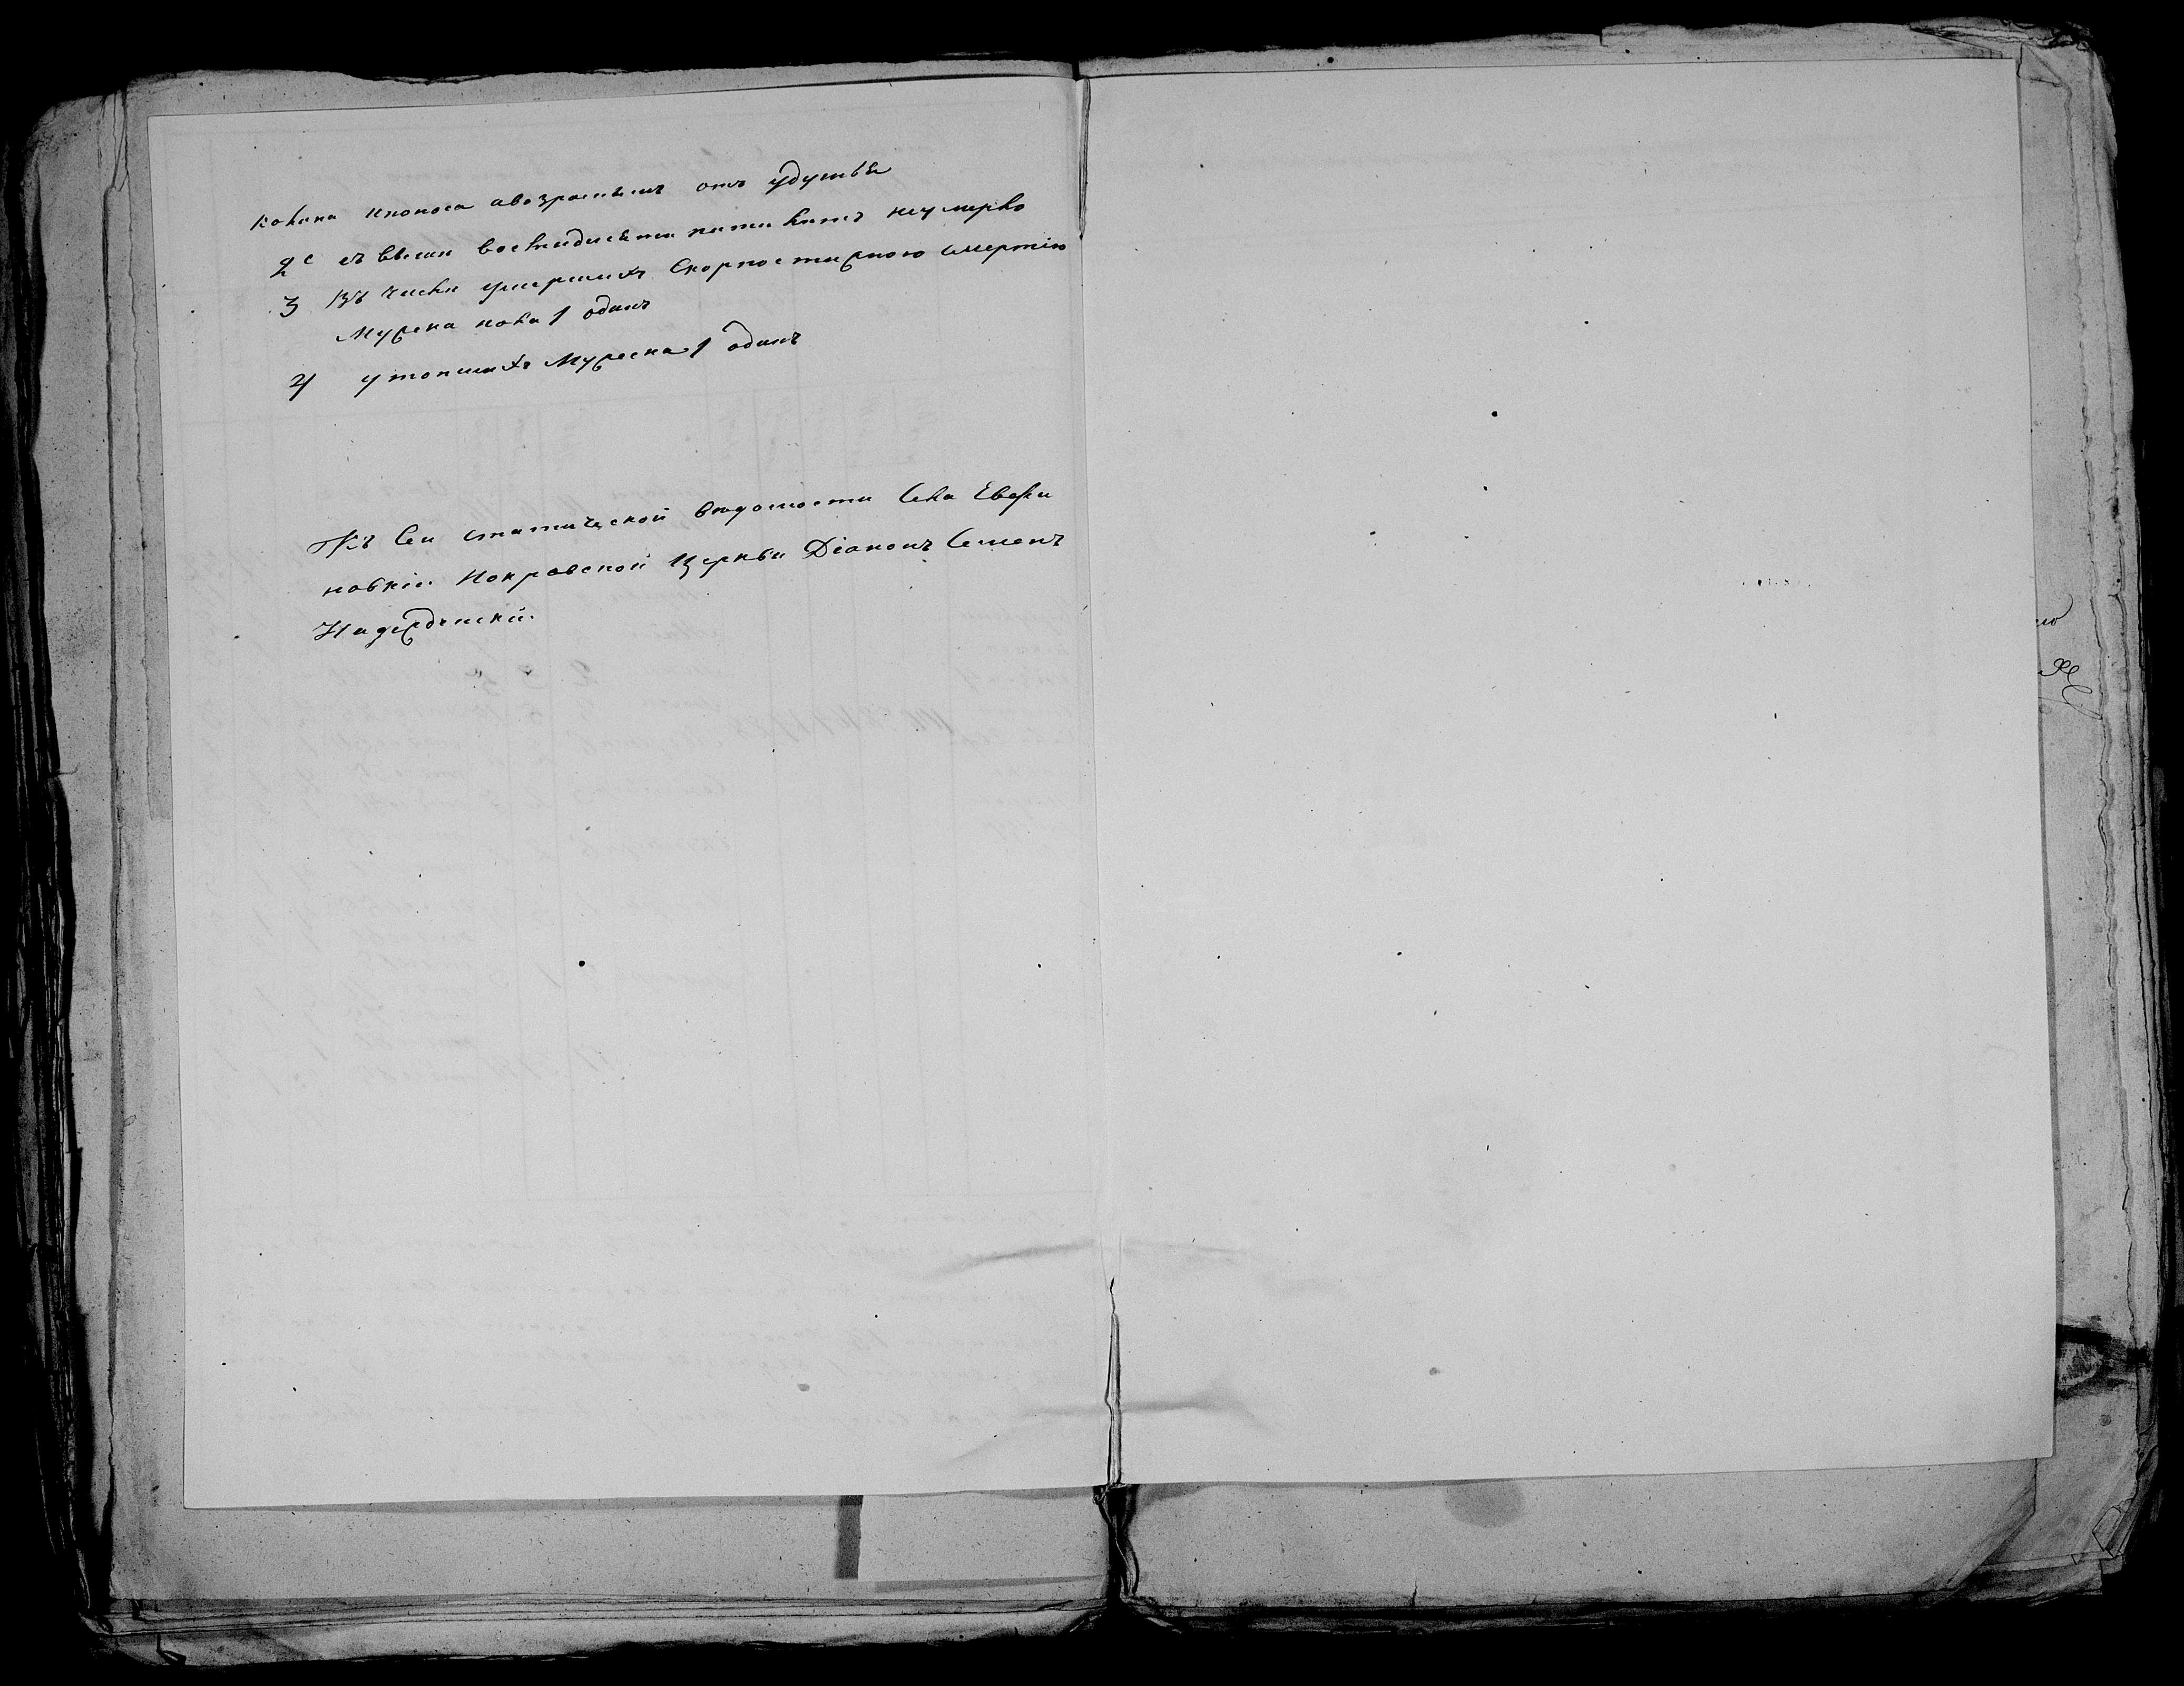 колика и поноса а возрастныя отъ удушья
2 е съ выши восмидисяти пяти летъ неумерло
3 въ числи умершихъ Скорпостижною смертію
Мужска пола 1 одинъ
4 утопшихъ Мужска 1 одинъ
Къ Сеи статической ведомости Села
новкіи Покровской Церкви Діаконъ Семенъ